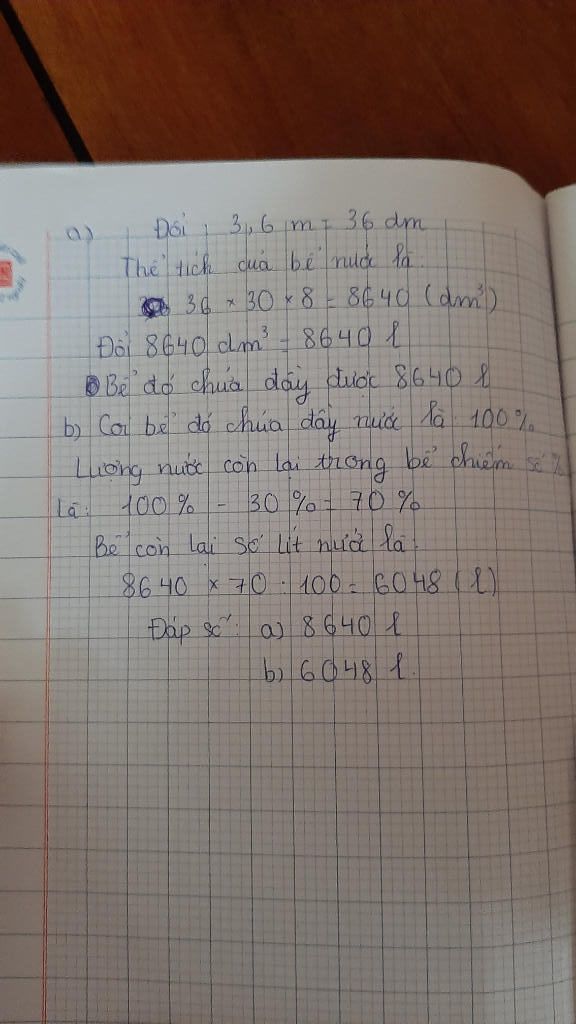 a) Đổi 3,6 m = 36 dm
Thể tích của bể nước là:
36 × 30 × 8 = 8640 (dm³)
Đổi 8640 dm³ = 8640 l
Bể đó chứa đầy được 8640 l
b) Coi bể đó chứa đầy nước là 100%
Lượng nước còn lại trong bể chiếm số %
là: 100% - 30% = 70%
Bể còn lại số lít nước là:
8640 × 70 : 100 = 6048 (l)
Đáp số: a) 8640 l
b) 6048 l.